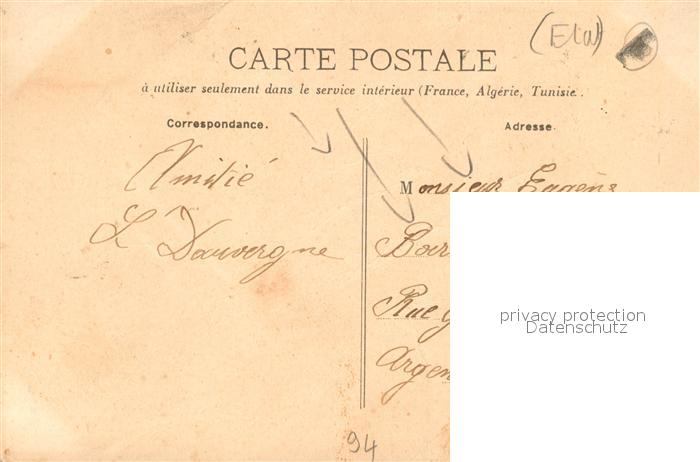 (Etat)
CARTE POSTALE
à utiliser seulement dans le service intérieur (France, Algérie, Tunisie.
Correspondance.
Adresse
Amitié
L Dauvergne
Monsieur Eugène
Rue
privacy protection
Datenschutz
94